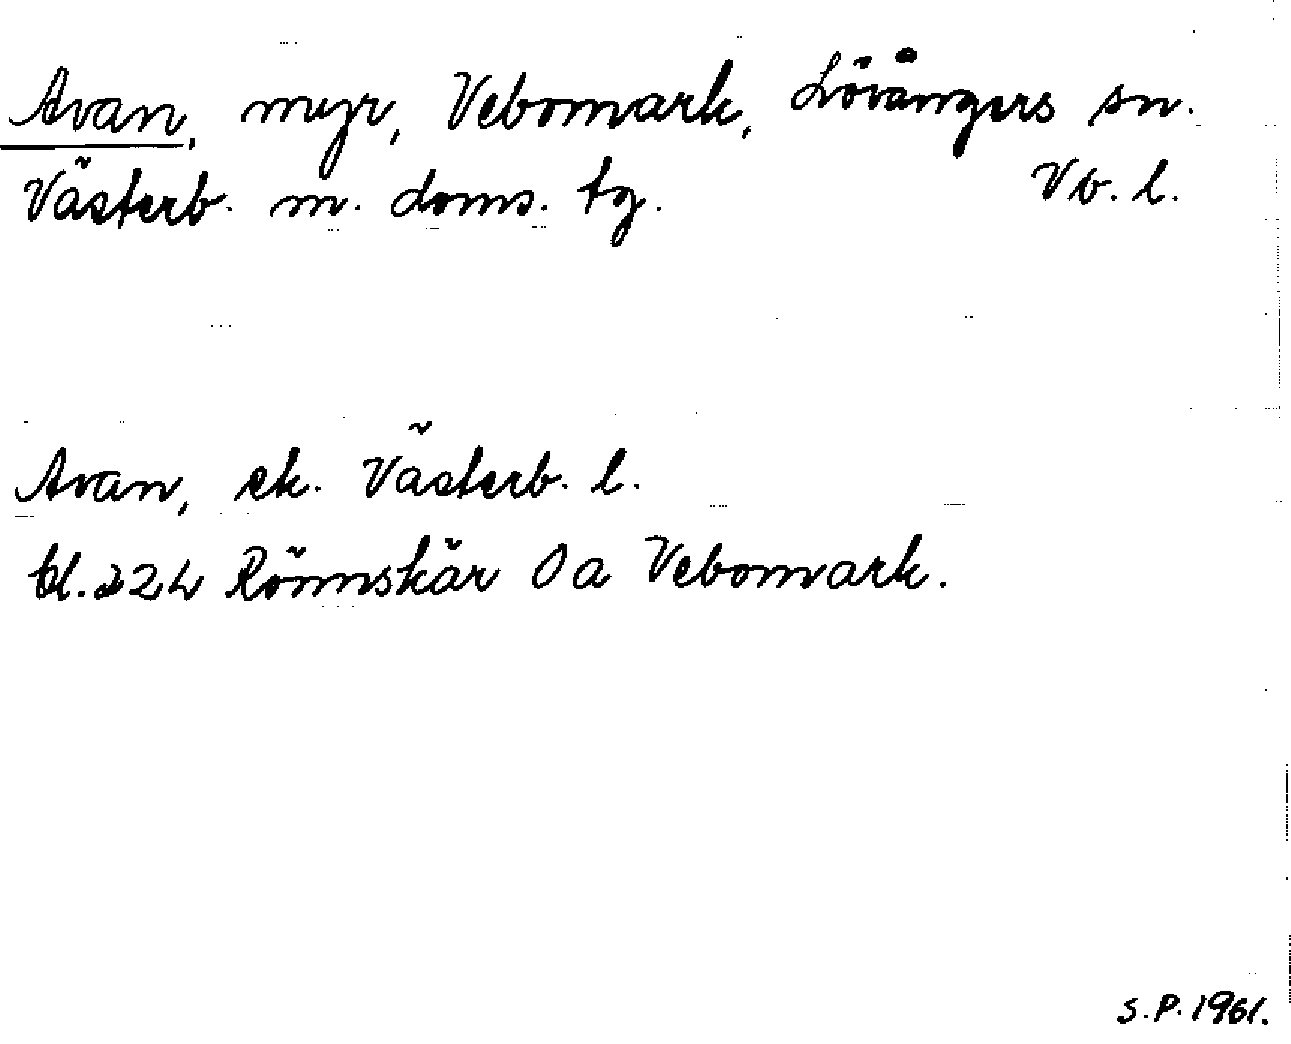 Avan, myr, Vebomark, Lövångers sn.
Västerb. m. doms. tg. Vb. l.
Avan, ek. Västerb. l.
bl. 224 Rönnskär Oa Vebomark.
S.P. 1961.